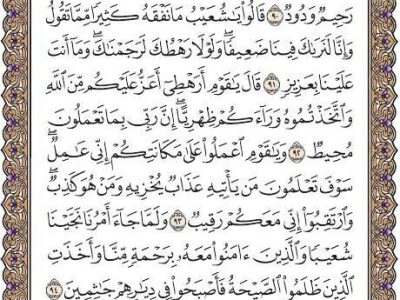 رَحِيمٌ وَدُودٌ ٩٠ قَالُوا۟ يَٰشُعَيْبُ مَا نَفْقَهُ كَثِيرًا مِّمَّا تَقُولُ
وَإِنَّا لَنَرَىٰكَ فِينَا ضَعِيفًا ۖ وَلَوْلَا رَهْطُكَ لَرَجَمْنَٰكَ ۖ وَمَآ أَنتَ
عَلَيْنَا بِعَزِيزٍ ٩١ قَالَ يَٰقَوْمِ أَرَهْطِىٓ أَعَزُّ عَلَيْكُم مِّنَ ٱللَّهِ
وَٱتَّخَذْتُمُوهُ وَرَآءَكُمْ ظِهْرِيًّا ۖ إِنَّ رَبِّى بِمَا تَعْمَلُونَ
مُحِيطٌ ٩٢ وَيَٰقَوْمِ ٱعْمَلُوا۟ عَلَىٰ مَكَانَتِكُمْ إِنِّى عَٰمِلٌ ۖ
سَوْفَ تَعْلَمُونَ مَن يَأْتِيهِ عَذَابٌ يُخْزِيهِ وَمَنْ هُوَ كَٰذِبٌ ۖ
وَٱرْتَقِبُوٓا۟ إِنِّى مَعَكُمْ رَقِيبٌ ٩٣ وَلَمَّا جَآءَ أَمْرُنَا نَجَّيْنَا
شُعَيْبًا وَٱلَّذِينَ ءَامَنُوا۟ مَعَهُۥ بِرَحْمَةٍ مِّنَّا وَأَخَذَتِ
ٱلَّذِينَ ظَلَمُوا۟ ٱلصَّيْحَةُ فَأَصْبَحُوا۟ فِى دِيَٰرِهِمْ جَٰثِمِينَ ٩٤